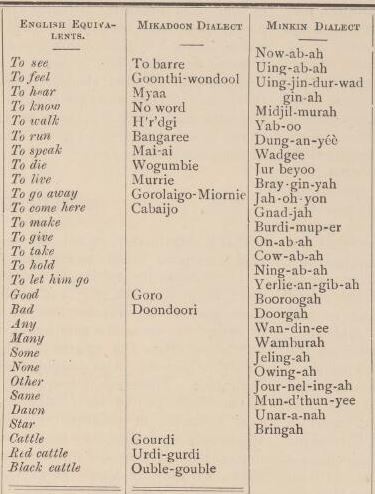 ENGLISH EQUIVA-
LENTS.
To see
To feel
To hear
To know
To walk
To run
To speak
To die
To live
To go away
To come here
To make
To give
To take
To hold
To let him go
Good
Bad
Any
Many
Some
None
Other
Same
Dawn
Star
Cattle
Red cattle
Black cattle
MIKADOON DIALECT
To barre
Goonthi-wondool
Myaa
No word
H'r'dgi
Bangaree
Mai-ai
Wogumbie
Murrie
Gorolaigo-Miornie
Cabaijo
Goro
Doondoori
Gourdi
Urdi-gurdi
Ouble-gouble
MINKIN DIALECT
Now-ab-ah
Uing-ab-ah
Uing-jin-dur-wad
gin-ah
Midjil-murah
Yab-oo
Dung-an-yéè
Wadgee
Jur beyoo
Bray-gin-yah
Jah-oh-yon
Gnad-jah
Burdi-mup-er
On-ab-ah
Cow-ab-ah
Ning-ab-ah
Yerlie-an-gib-ah
Booroogah
Doorgah
Wan-din-ee
Wamburah
Jeling-ah
Owing-ah
Jour-nel-ing-ah
Mun-d'thun-yee
Unar-a-nah
Bringah